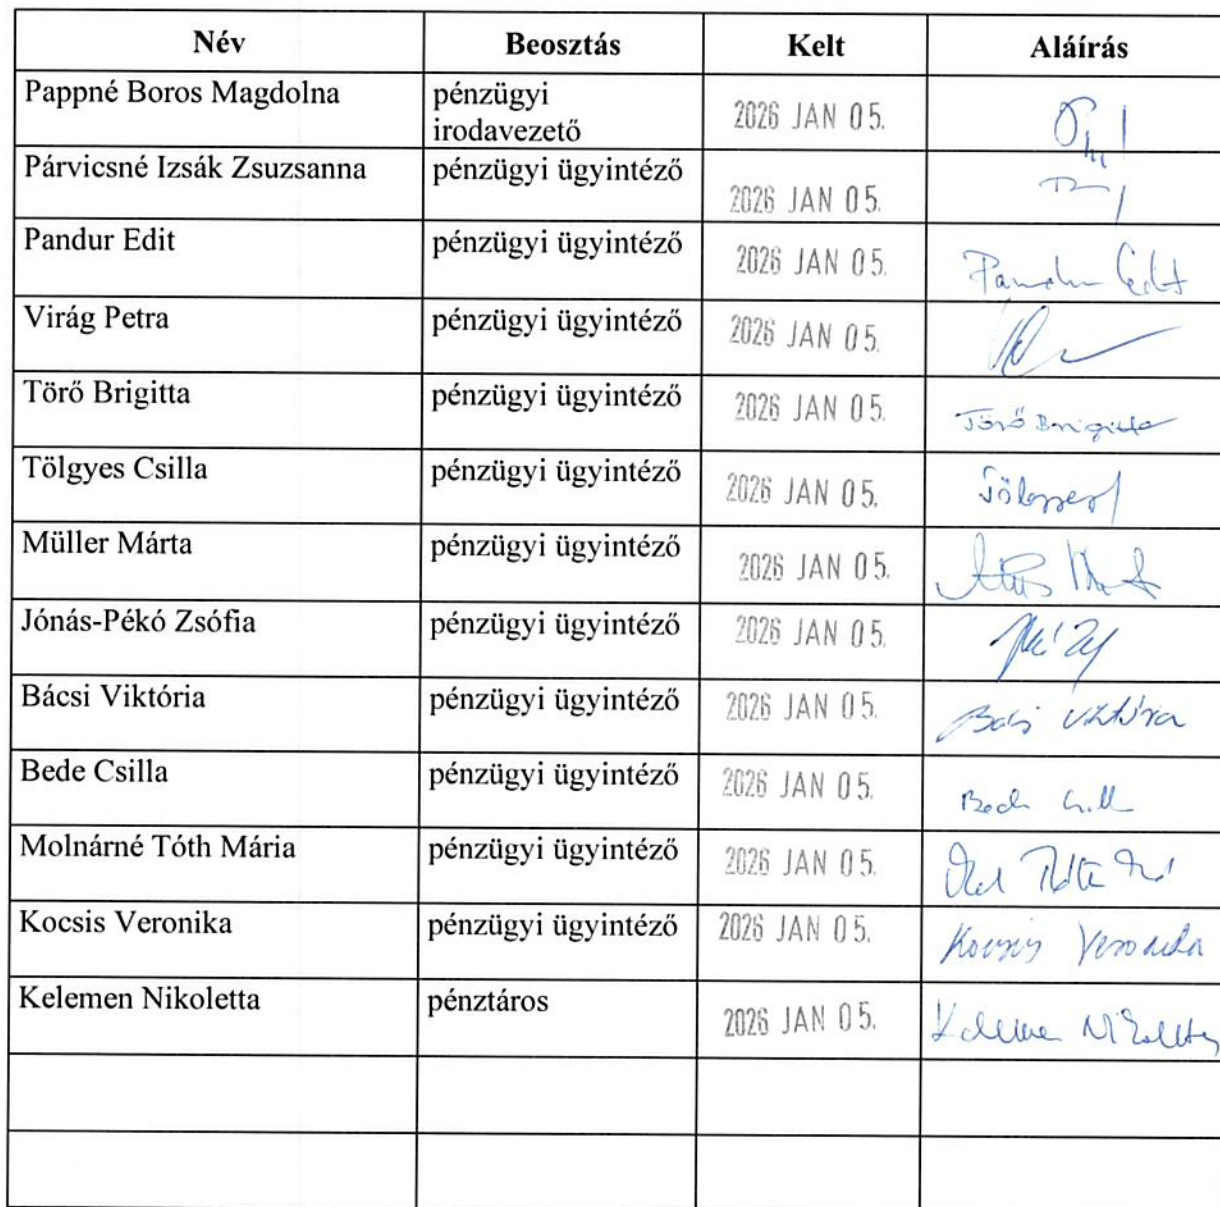 Név Beosztás Kelt Aláírás
Pappné Boros Magdolna pénzügyi 2026 JAN 05.
irodavezető
Párvicsné Izsák Zsuzsanna pénzügyi ügyintéző 2026 JAN 05.
Pandur Edit pénzügyi ügyintéző 2026 JAN 05. Pandur Edit
Virág Petra pénzügyi ügyintéző 2026 JAN 05.
Törő Brigitta pénzügyi ügyintéző 2026 JAN 05. Törő Brigitta
Tölgyes Csilla pénzügyi ügyintéző 2026 JAN 05.
Müller Márta pénzügyi ügyintéző 2026 JAN 05.
Jónás-Pékó Zsófia pénzügyi ügyintéző 2026 JAN 05.
Bácsi Viktória pénzügyi ügyintéző 2026 JAN 05. Bácsi Viktória
Bede Csilla pénzügyi ügyintéző 2026 JAN 05.
Molnárné Tóth Mária pénzügyi ügyintéző 2026 JAN 05.
Kocsis Veronika pénzügyi ügyintéző 2026 JAN 05. Kocsis Veronika
Kelemen Nikoletta pénztáros 2026 JAN 05. Kelemen Nikoletta